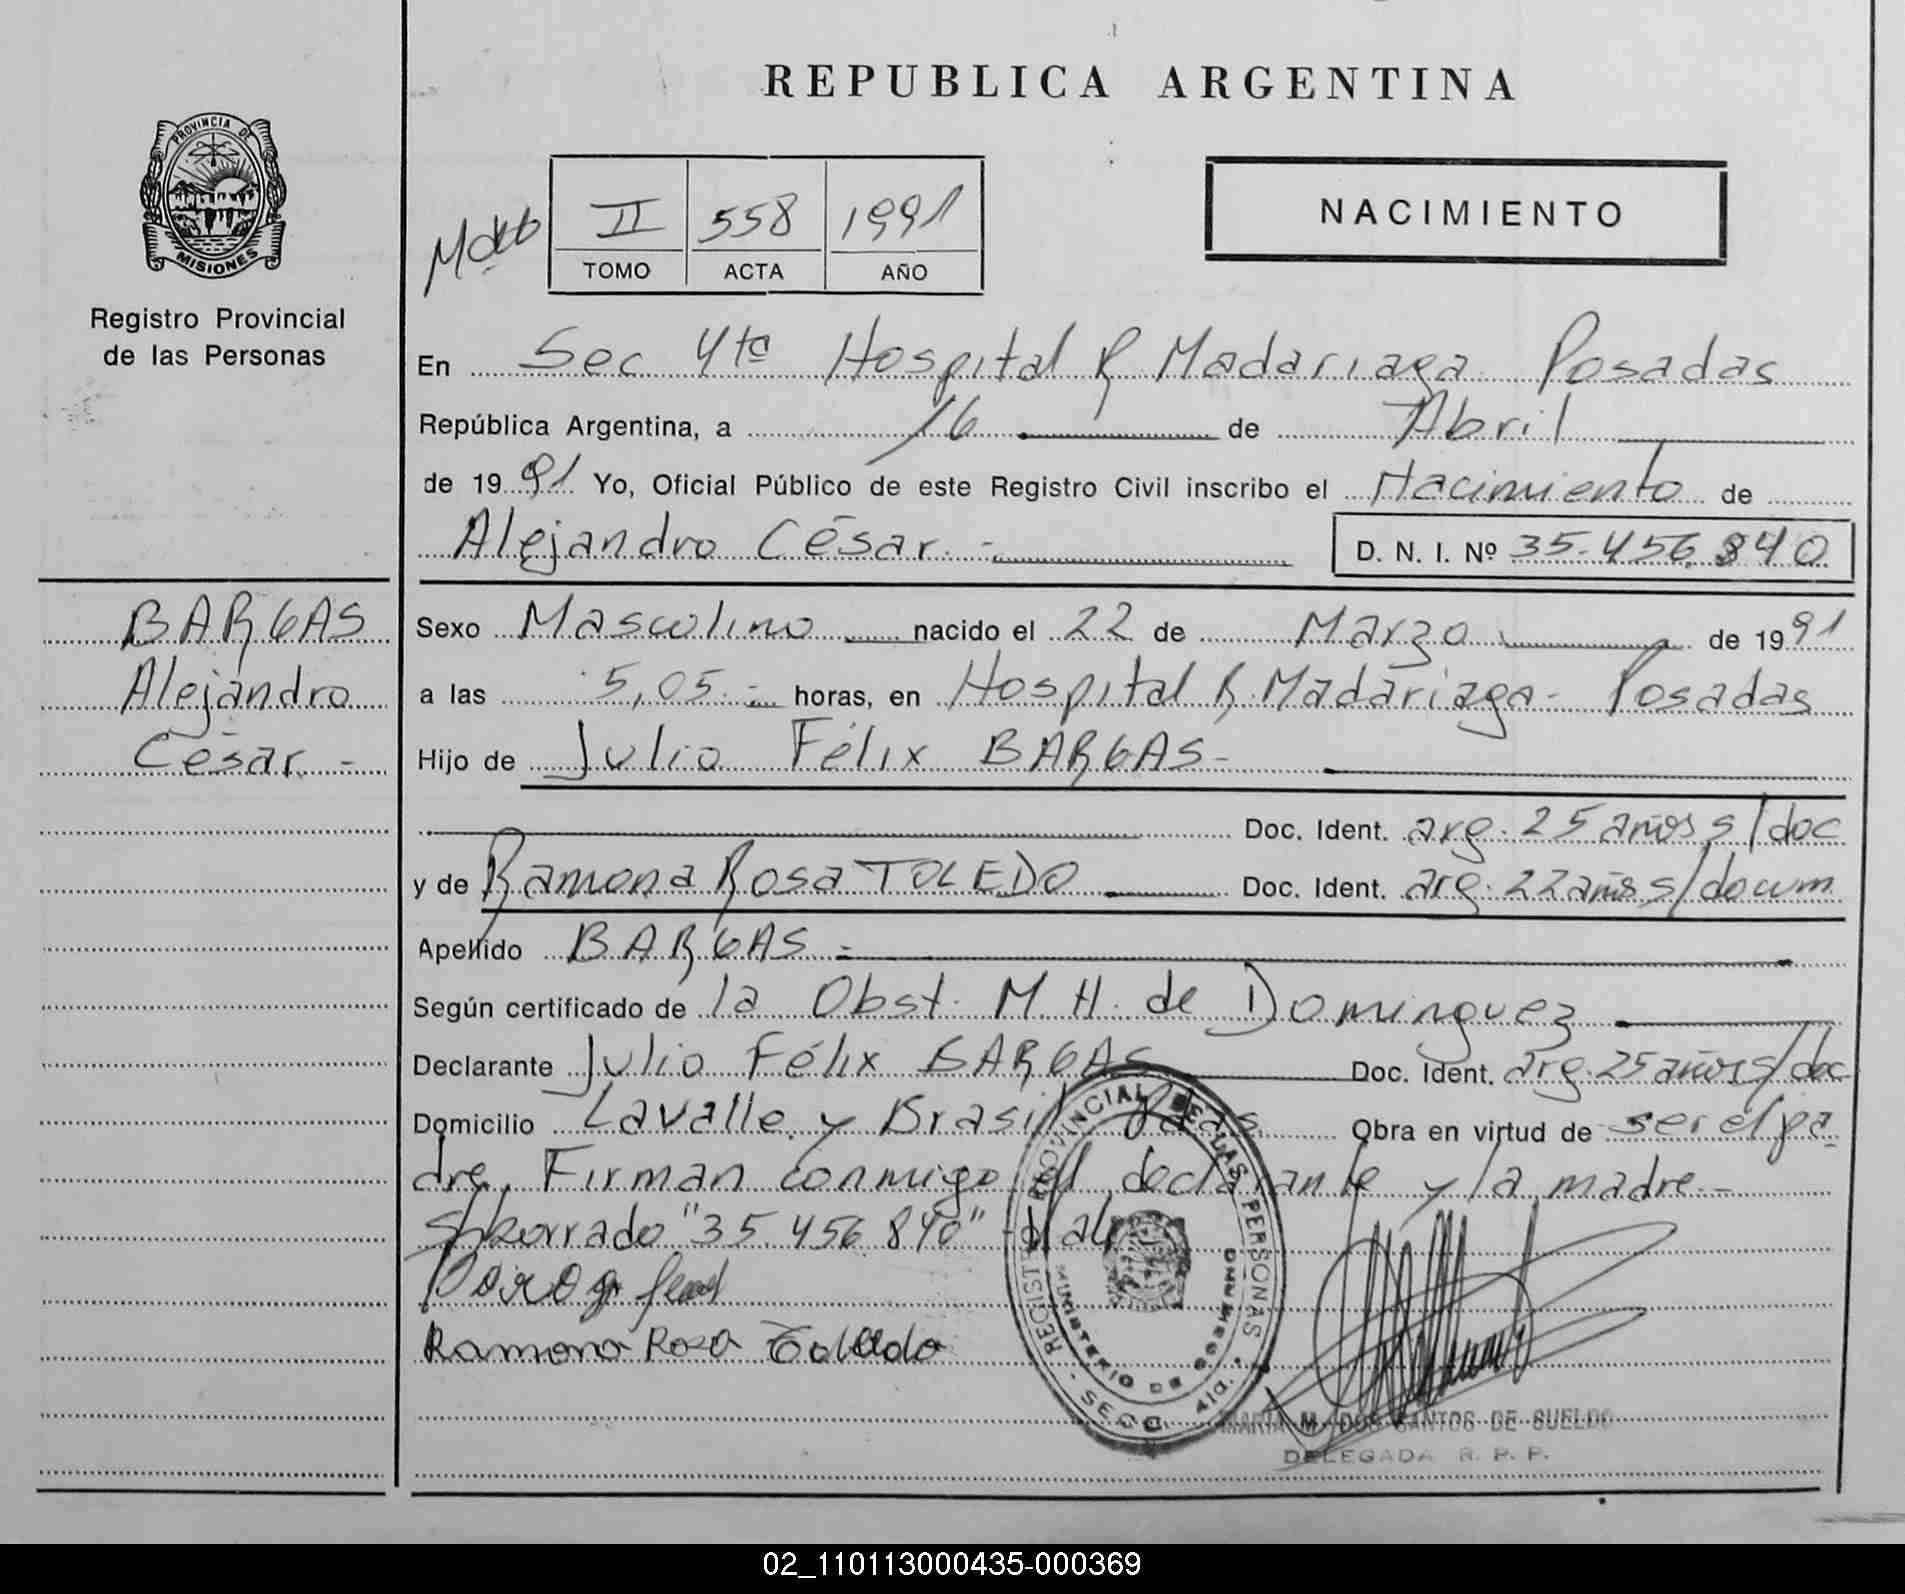 REPUBLICA ARGENTINA
PROVINCIA DE
MISIONES
Registro Provincial
de las Personas
II 558 1991
TOMO ACTA AÑO
NACIMIENTO
En Sec 4ta Hospital R Madariaga Posadas
República Argentina, a 16 de Abril
de 1991 Yo, Oficial Público de este Registro Civil inscribo el Nacimiento de
Alejandro César.-
D. N. I. Nº 35.456.840
BARGAS
Alejandro
César.-
Sexo Masculino nacido el 22 de Marzo de 1991
a las 5,05.- horas, en Hospital R. Madariaga- Posadas
Hijo de Julio Félix BARGAS-
Doc. Ident. arg. 25 años s/doc
y de Ramona Rosa TOLEDO Doc. Ident. arg. 22 años s/docum
Apellido BARGAS.-
Según certificado de la Obst. M. H. de Dominguez
Declarante Julio Félix BARGAS Doc. Ident. arg. 25 años s/doc
Domicilio Lavalle y Brasil Pdas. Obra en virtud de ser el pa
dre. Firman conmigo el declarante y la madre.-
s/borrado "35.456.840"
Ramona Rosa Toledo
REGISTRO PROVINCIAL DE LAS PERSONAS
MINISTERIO DE GOBIERNO
SECC. 4ta.
MARIA M. DOS SANTOS DE SUELDO
DELEGADA R. P. P.
02_110113000435-000369